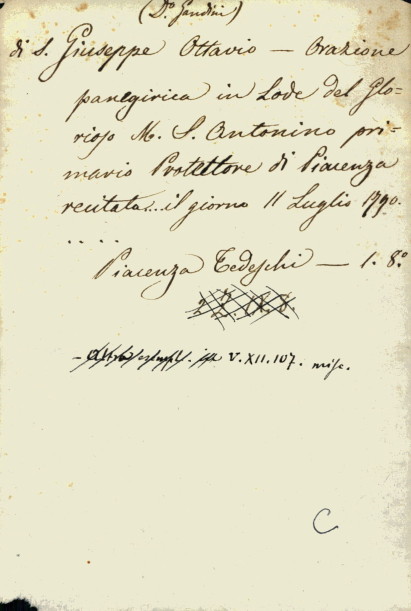 (D.º Gandini)
di S. Giuseppe Ottavio — Orazione
panegirica in Lode del Glo-
rioso M. S. Antonino pri-
mario Protettore di Piacenza
recitata...il giorno 11 Luglio 1790.
....
Piacenza Tedeschi — 1. 8º
- Altro esempl. in V. XII. 107. misc.
C